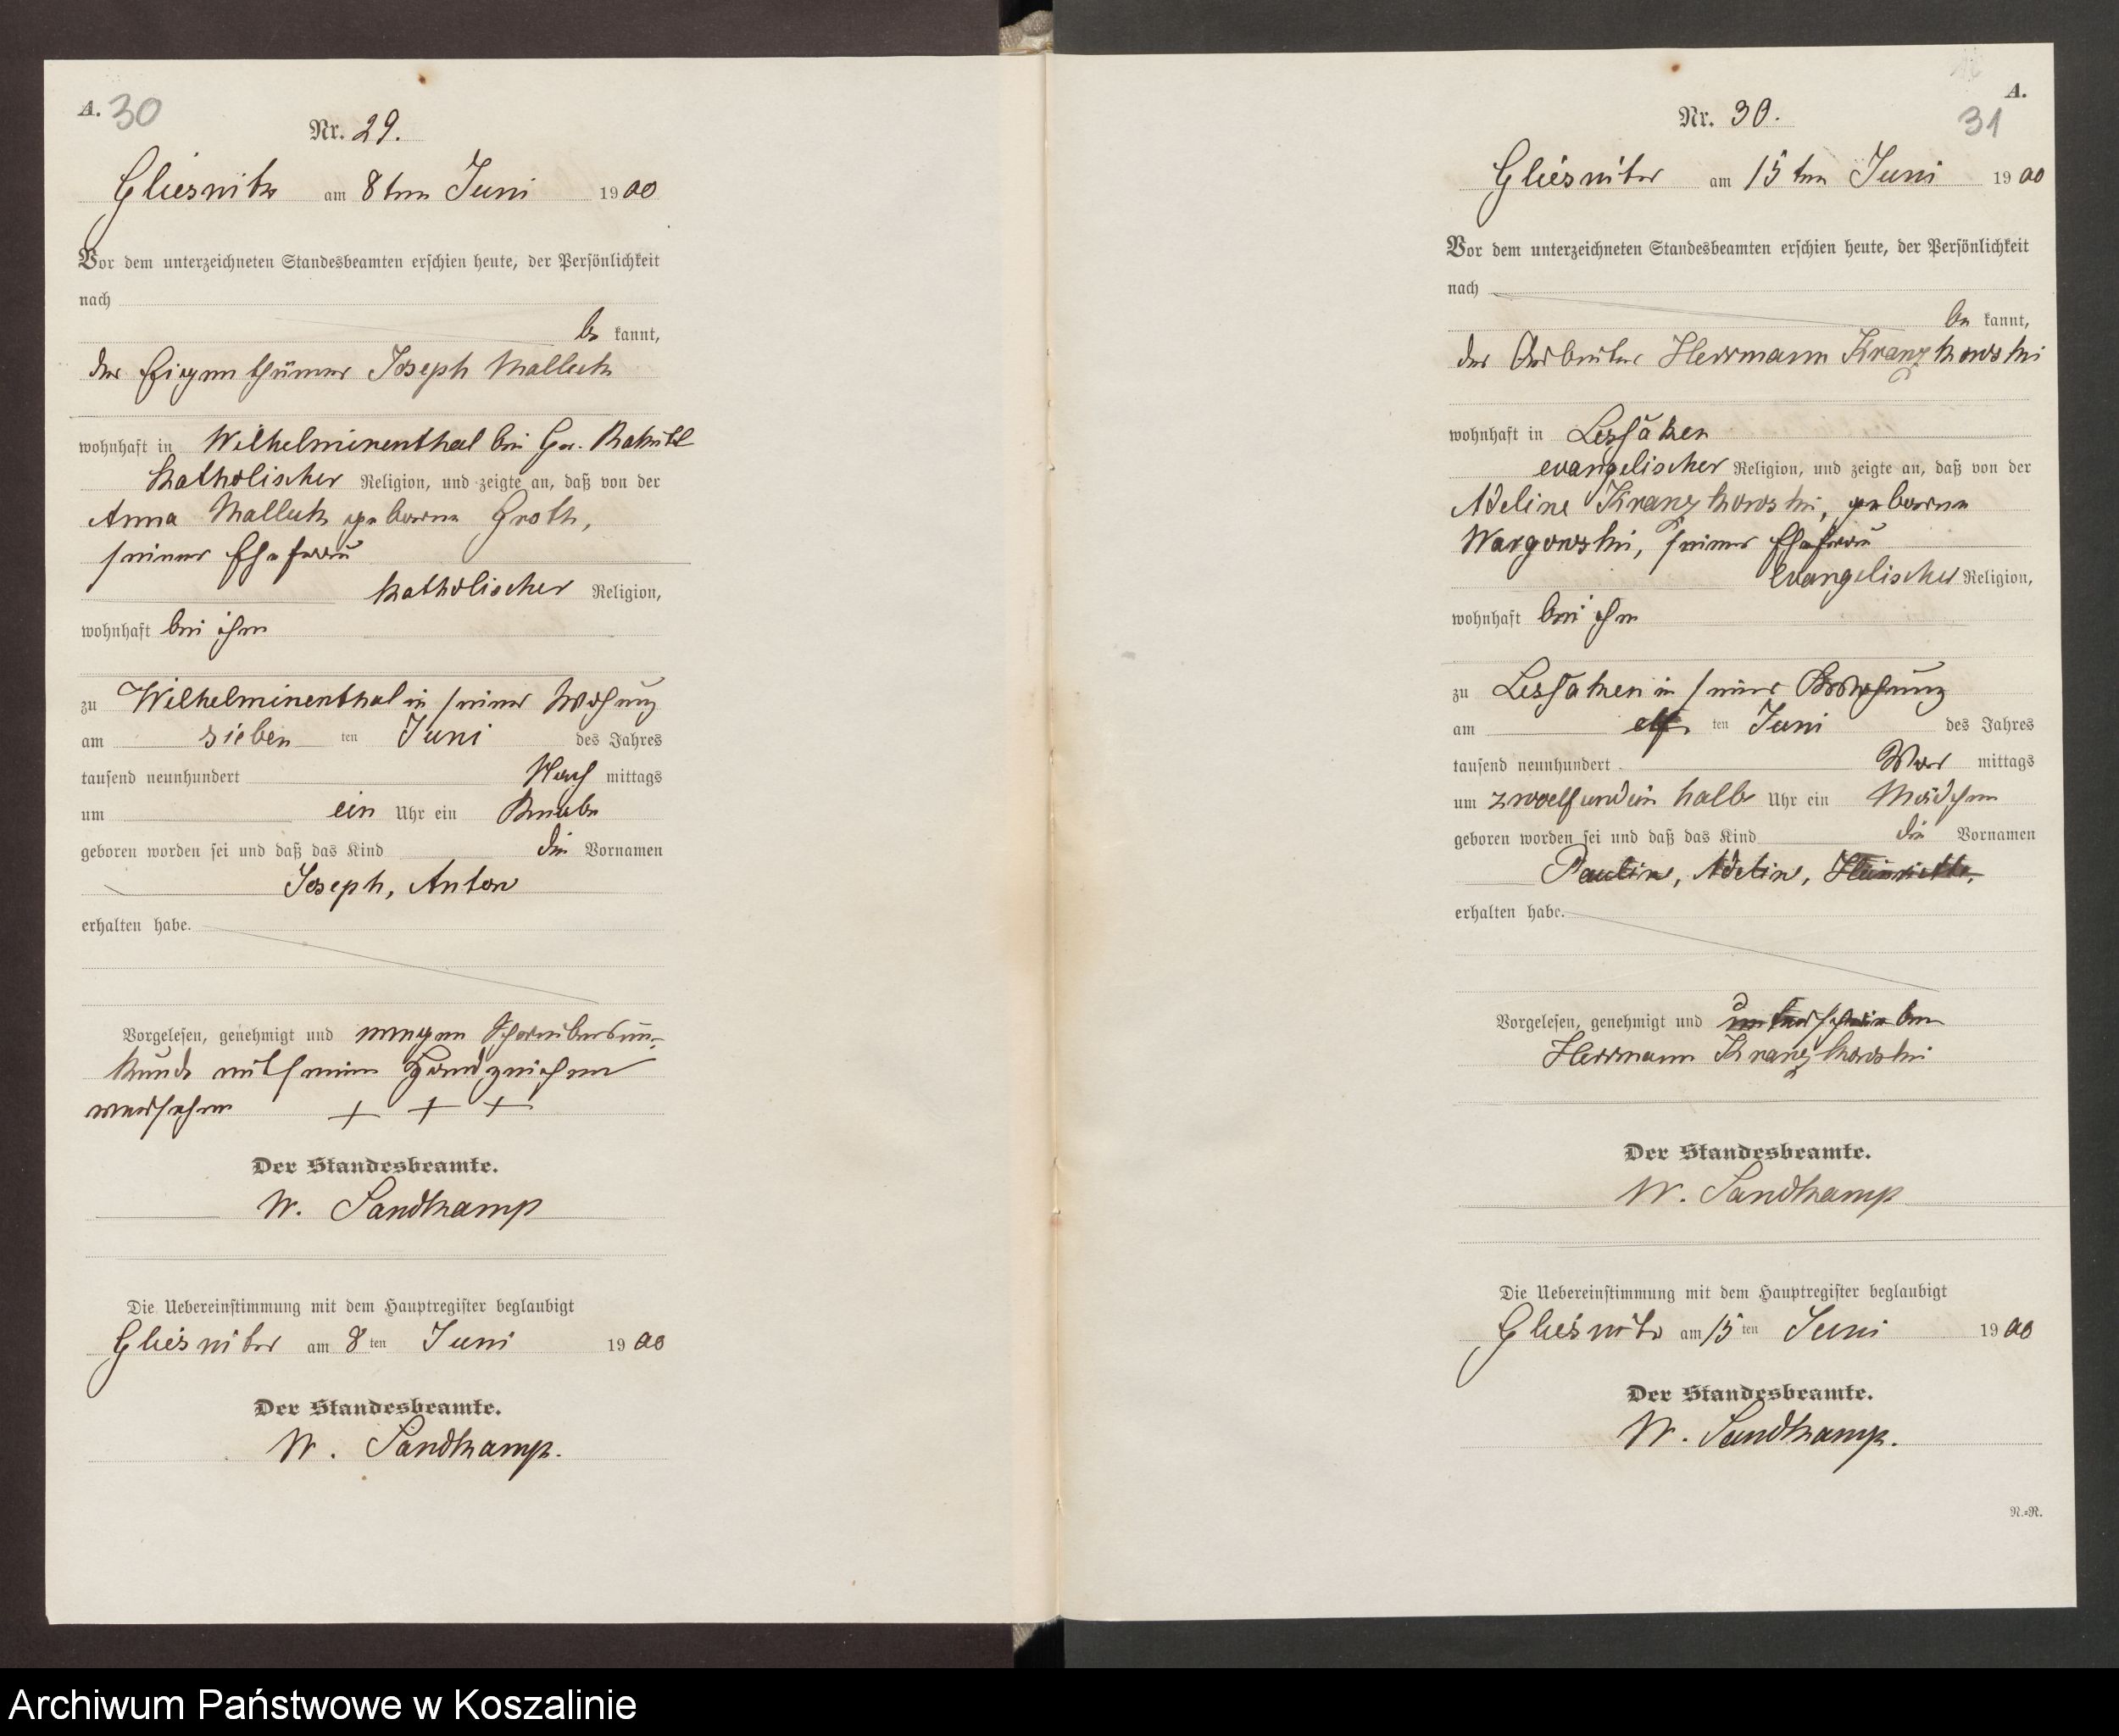 A. 30
Nr. 29.
Gliesnitz am 8ten Juni 1900
Vor dem unterzeichneten Standesbeamten erschien heute, der Persönlichkeit
nach
be kannt,
der Eigenthümer Joseph Malleck
wohnhaft in Wilhelminenthal bei Gr. Rakitt
katholischer Religion, und zeigte an, daß von der
Anna Malleck geborne Groth,
seiner Ehefrau
katholischer Religion,
wohnhaft bei ihm
zu Wilhelminenthal in seiner Wohnung
am sieben ten Juni des Jahres
tausend neunhundert Nach mittags
um ein Uhr ein Knabe
geboren worden sei und daß das Kind die Vornamen
Joseph, Anton
erhalten habe.
Vorgelesen, genehmigt und wegen Schreibensun-
kunde mit seinem Handzeichen
versehen + + +
Der Standesbeamte.
W. Sandkamp
Die Uebereinstimmung mit dem Hauptregister beglaubigt
Gliesnitz am 8ten Juni 1900
Der Standesbeamte.
W. Sandkamp.
A.
31
Nr. 30.
Gliesnitz am 15ten Juni 1900
Vor dem unterzeichneten Standesbeamten erschien heute, der Persönlichkeit
nach
be kannt,
der Arbeiter Herrmann Kranzkowski
wohnhaft in Lessaken
evangelischer Religion, und zeigte an, daß von der
Adeline Kranzkowski, geborne
Wargowski, seiner Ehefrau
evangelischer Religion,
wohnhaft bei ihm
zu Lessaken in seiner Wohnung
am elf ten Juni des Jahres
tausend neunhundert Vor mittags
um zwoelfundein halb Uhr ein Mädchen
geboren worden sei und daß das Kind die Vornamen
Pauline, Adeline,
erhalten habe.
Vorgelesen, genehmigt und unterschrieben
Herrmann Kranzkowski
Der Standesbeamte.
W. Sandkamp
Die Uebereinstimmung mit dem Hauptregister beglaubigt
Gliesnitz am 15ten Juni 1900
Der Standesbeamte.
W. Sandkamp.
N.=R.
Archiwum Państwowe w Koszalinie